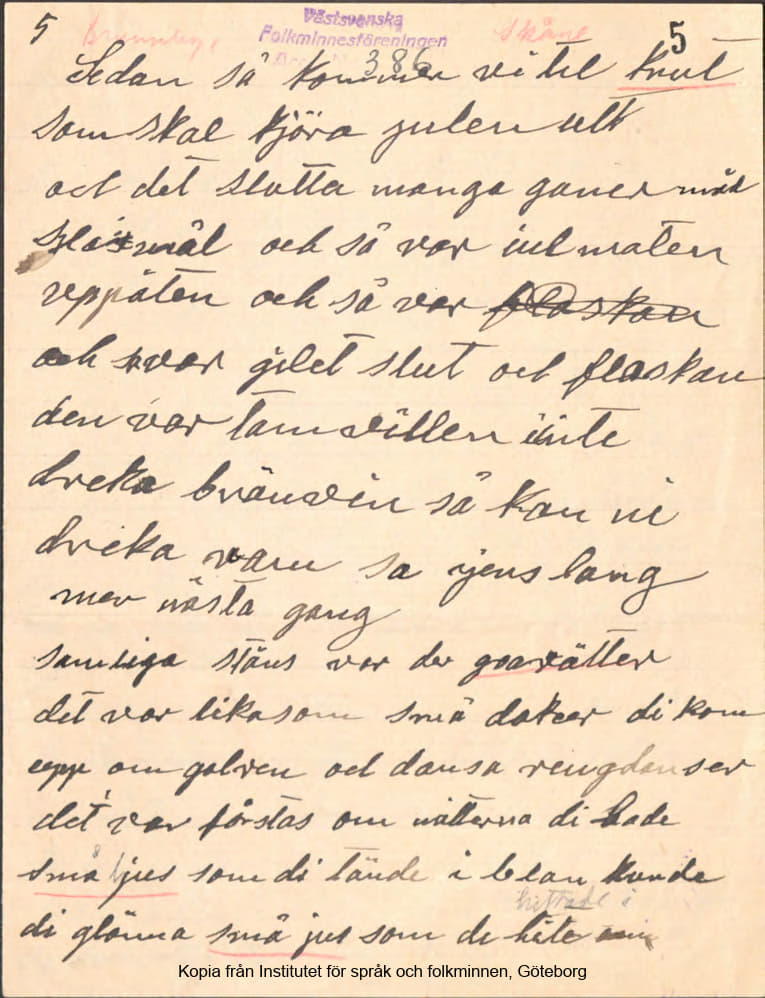 5
Västsvenska
Folkminnesföreningen
Skåne
5
386
Sedan så kommer vi til knut
som skal kjöra julen ut
och det slutta manga ganer med
slasmål och så var jul maten
uppäten och så var flaskan
och var gilet slut och flaskan
den var tom villen inte
dreka bränvin så kan ni
drika vanu sa ijens lang
mer nästa gang
samliga stäns var der goavätter
det var lika som små dokeer di kom
upp om golven och dansa rengdanser
det var förstas om nätterna di hade
små ljus som di tände i blan kunde
hittade i
di glönna små jus som de håte
Kopia från Institutet för språk och folkminnen, Göteborg